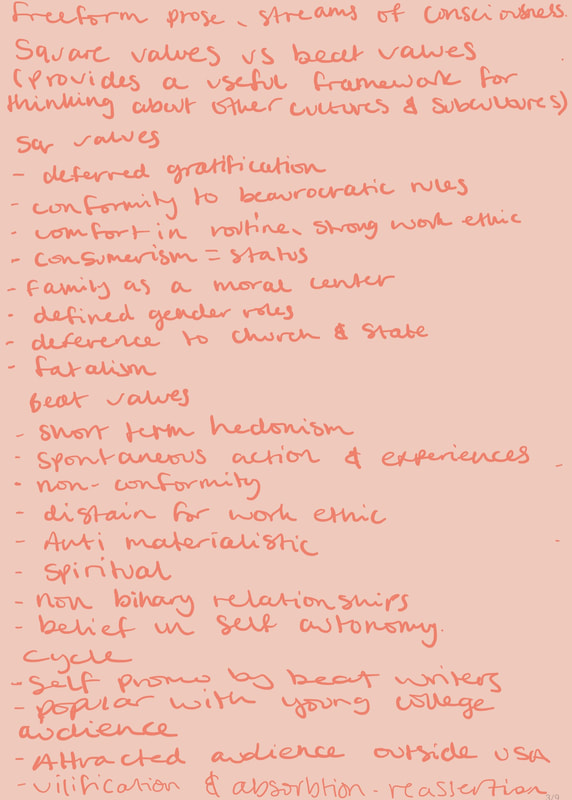 freeform prose, streams of consciousness.
Square values vs beat values
(provides a useful framework for
thinking about other cultures & subcultures)
Sqr values
- deferred gratification
- conformity to beaurocratic rules
- comfort in routine, strong work ethic
- consumerism = status
- family as a moral center
- defined gender roles
- deference to church & state
- fatalism
beat values
- short term hedonism
- spontaneous action & experiences
- non-conformity
- distain for work ethic
- Anti materialistic
- spiritual
- non binary relationships
- belief in self autonomy.
cycle
- self promo by beat writers
- popular with young college
audience
- Attracted audience outside USA
- vilification & absorbtion - reassertion
3/9